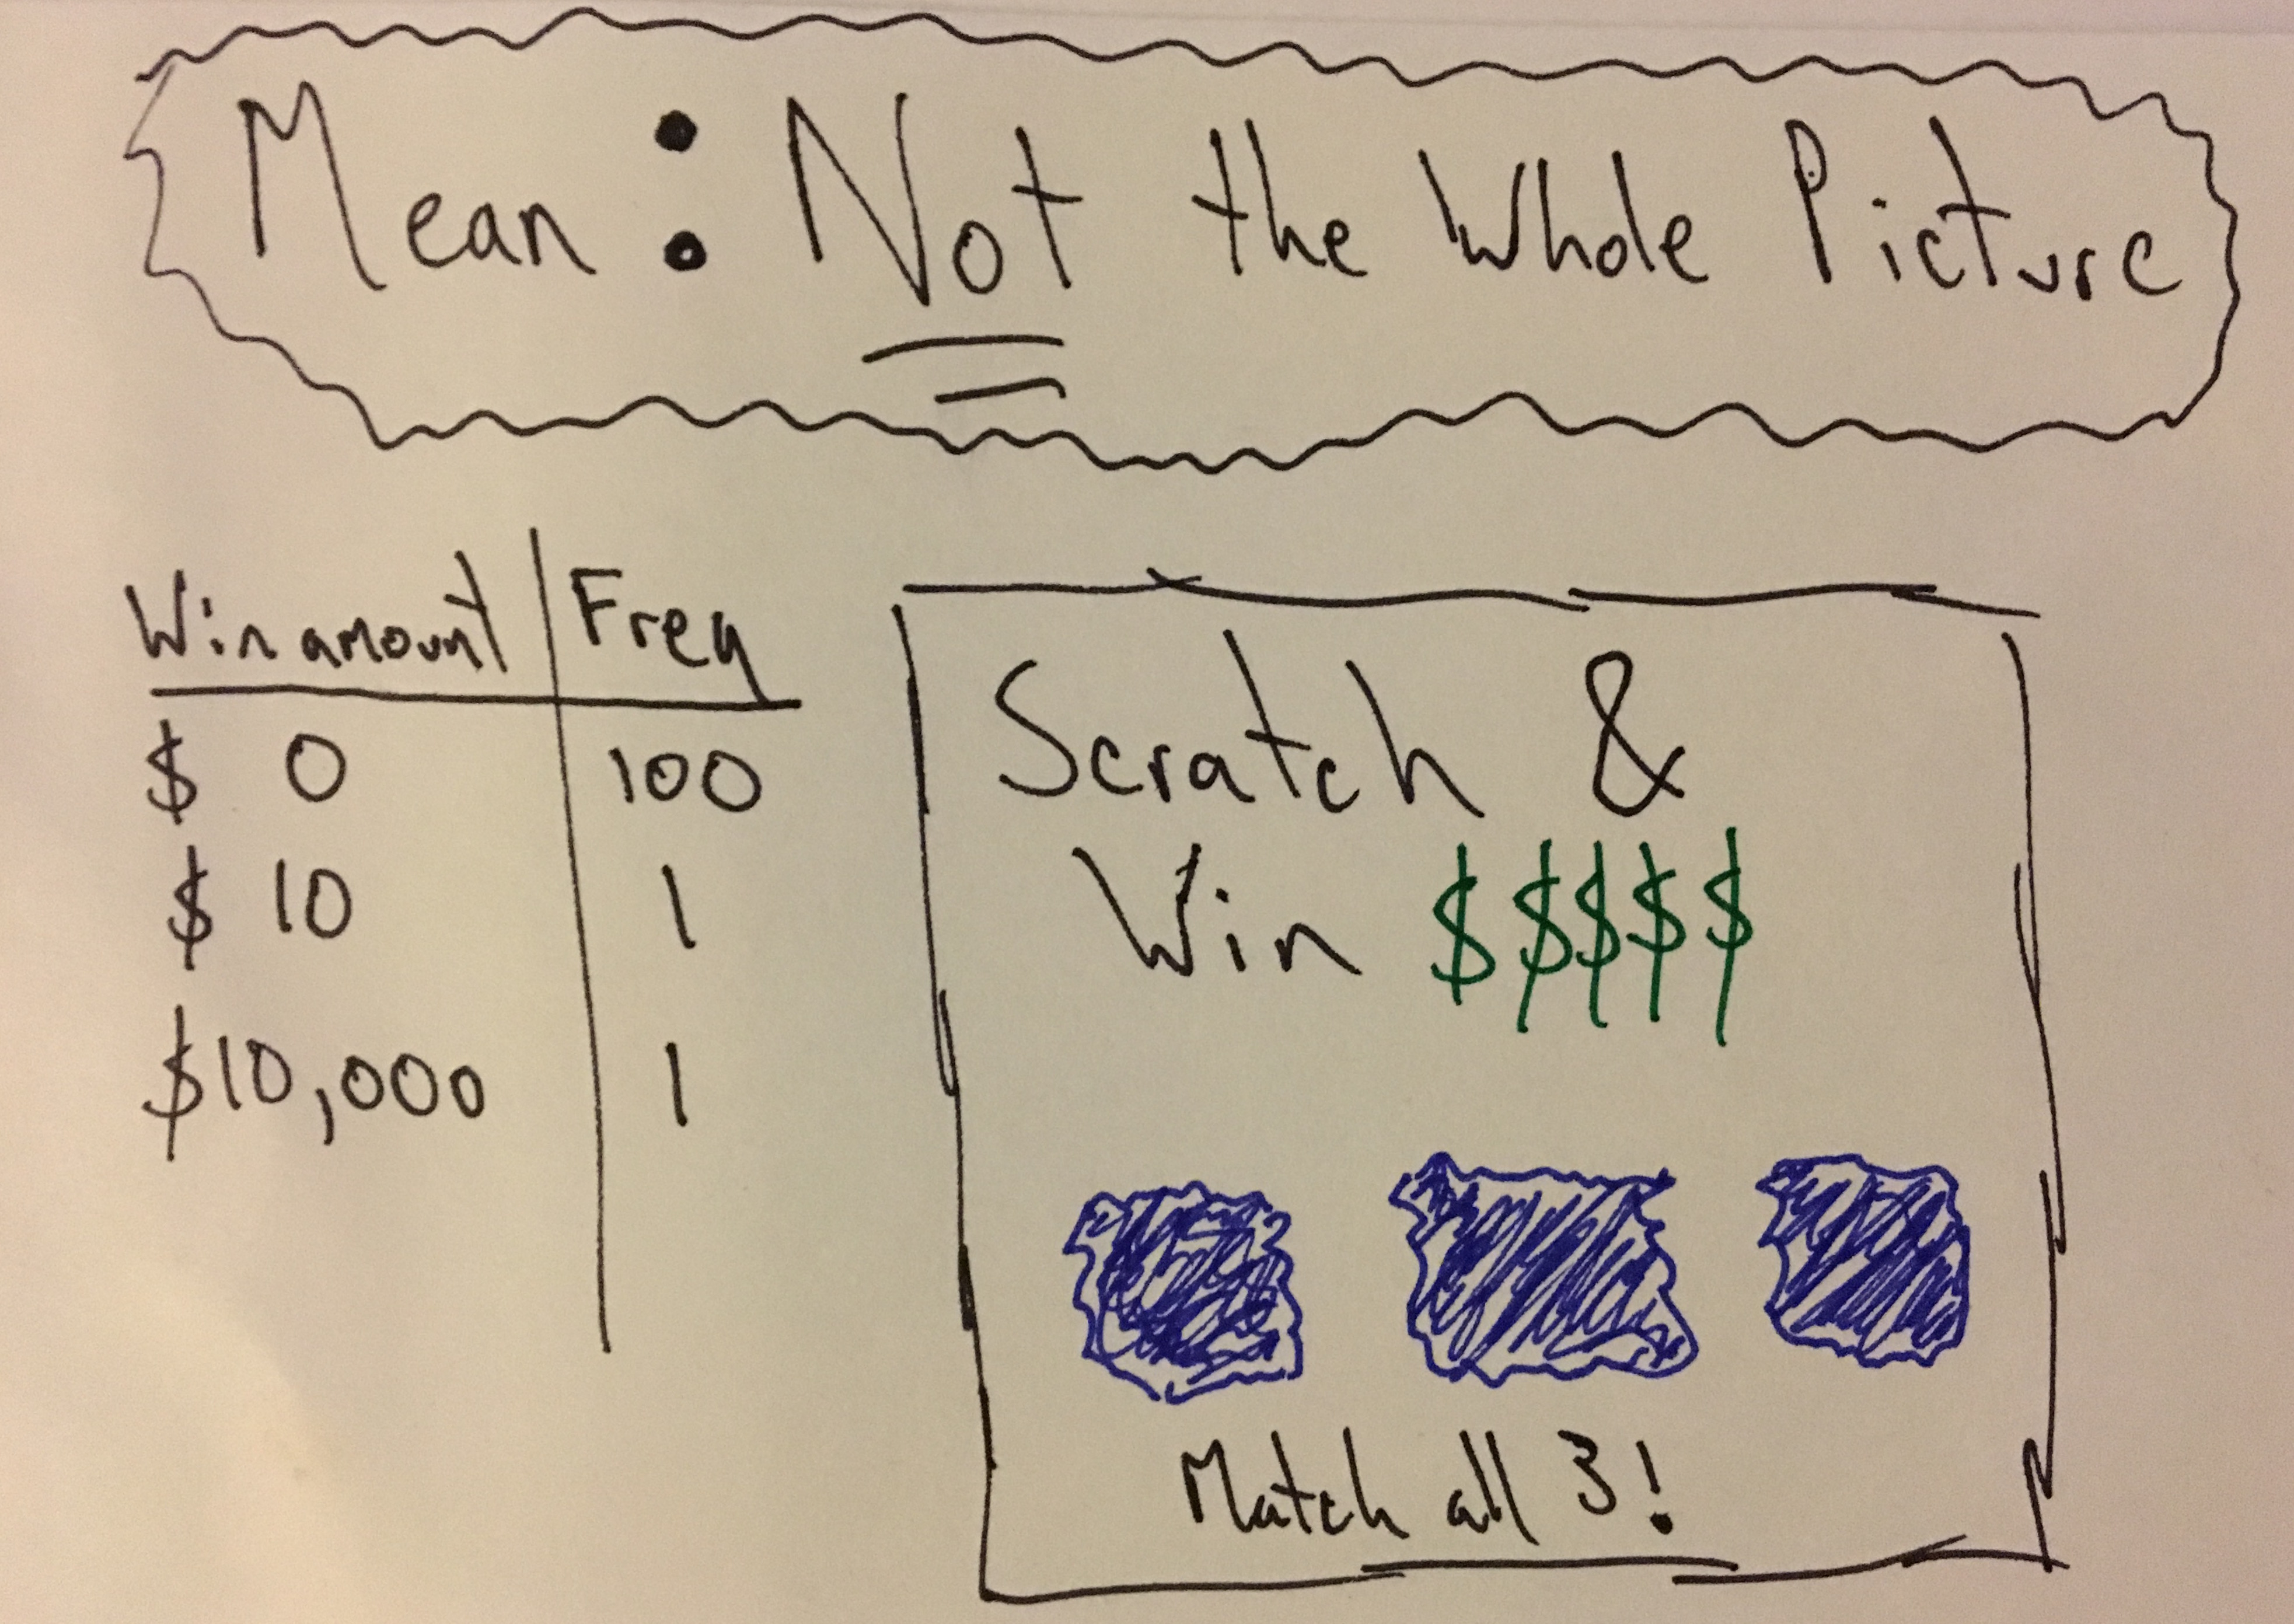 Mean: Not the Whole Picture
Win amount Freq
$ 0 100
$ 10 1
$10,000 1
Scratch &
Win $$$$$
Match all 3!